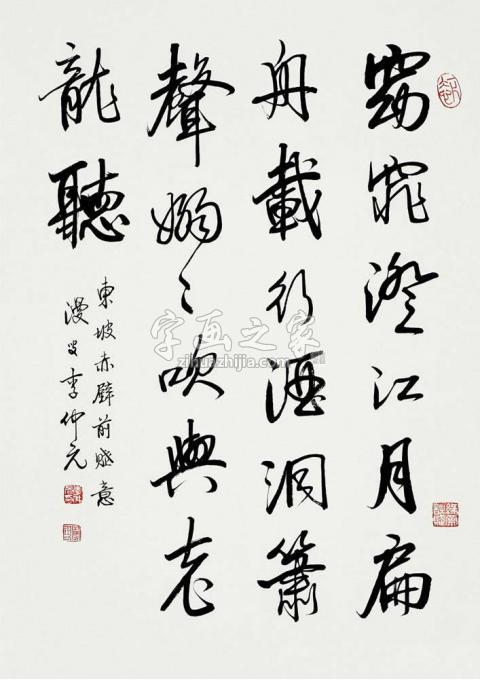 窈窕澄江月扁
舟載行酒洞簫
聲嫋〻吹與老
龍聽
東坡赤壁前賦意
漫叟李仲元
字画之家
zihuazhijia.com